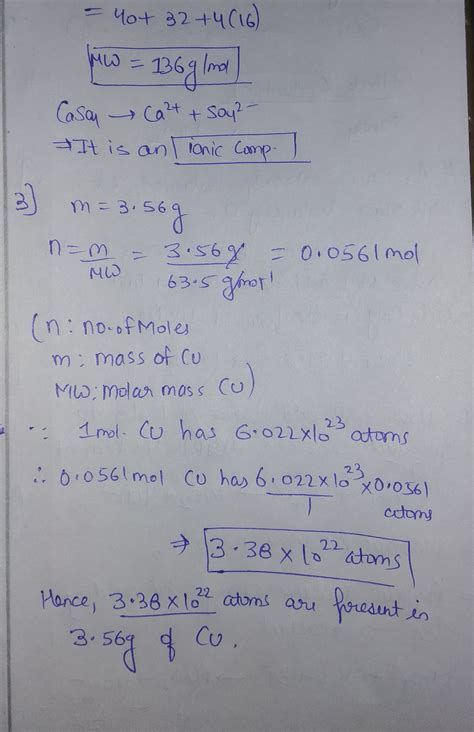 = 40 + 32 + 4(16)
MW = 136 g/mol
CaSO4 → Ca2+ + SO4 2-
⇒ It is an ionic Comp.
3] m = 3.56g
n = m/MW = 3.56 g/63.5 g/mol = 0.0561 mol
(n: no. of Moles
m: mass of Cu
MW: Molar mass Cu)
∵ 1 mol. Cu has 6.022×10^23 atoms
∴ 0.0561 mol Cu has 6.022×10^23/1 ×0.0561
atoms
⇒ 3.38 × 10^22 atoms
Hence, 3.38×10^22 atoms are present in
3.56g of Cu.